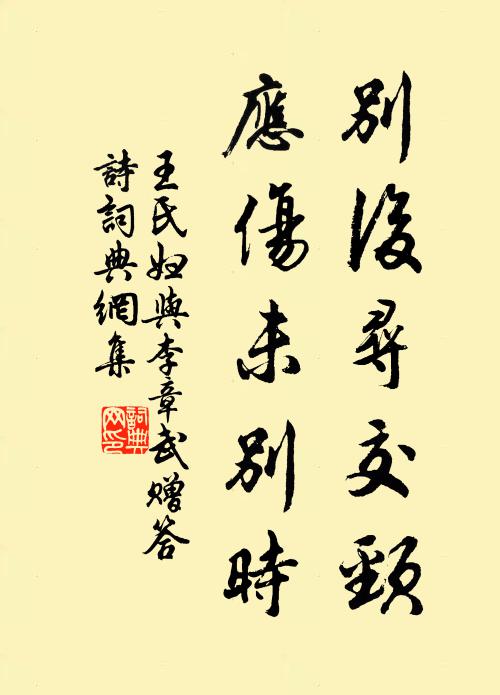 別後尋交頸
應傷未別時
王氏婦與李章武贈答
詩詞典網集
詞典网印